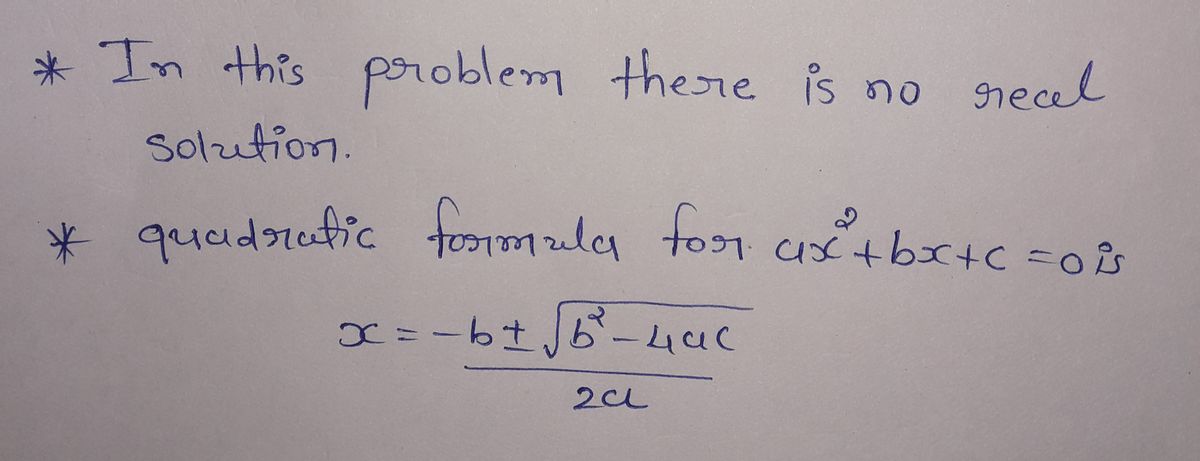 * In this problem there is no real
solution.
* quadratic formula for ax²+bx+c=0 is
x = -b ± √b²-4ac
2a